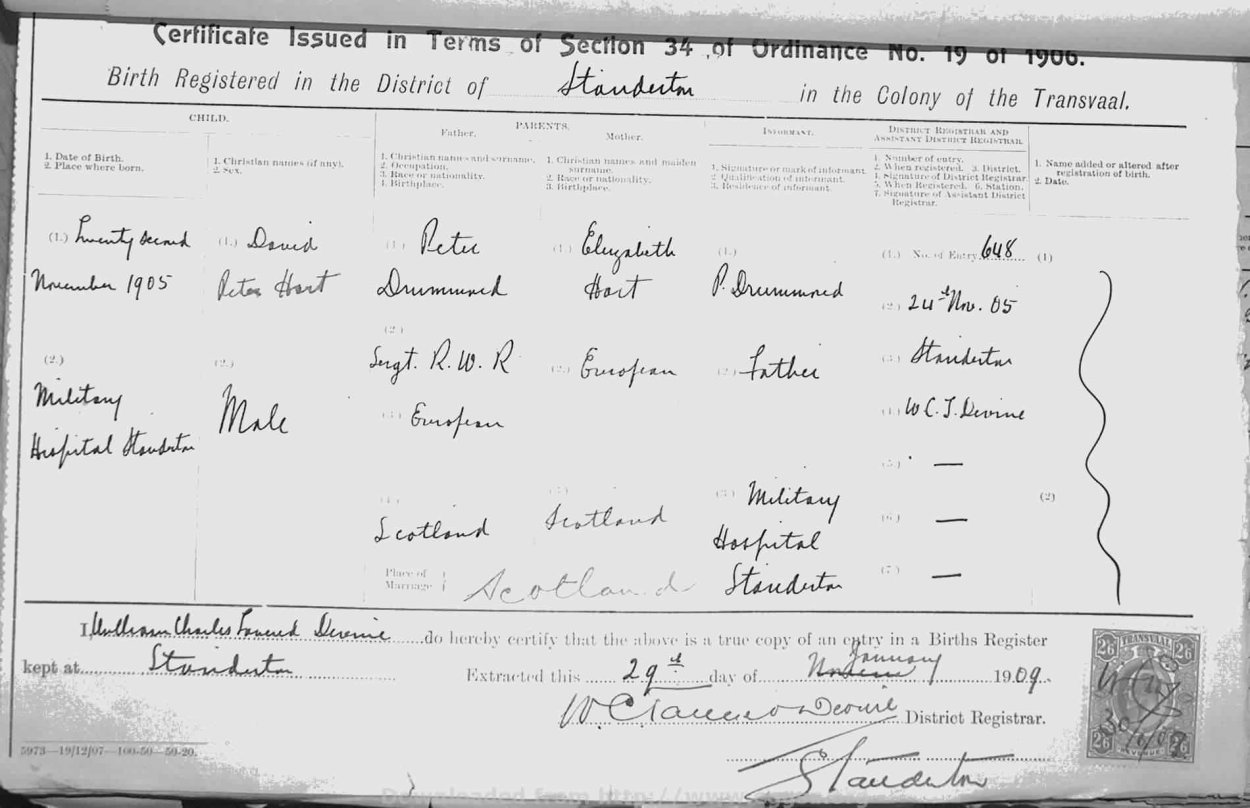 Certificate Issued in Terms of Section 34 of Ordinance No. 19 of 1906.
Birth Registered in the District of Standerton in the Colony of the Transvaal.
CHILD.
PARENTS.
Father. Mother.
INFORMANT.
DISTRICT REGISTRAR AND
ASSISTANT DISTRICT REGISTRAR.
1. Date of Birth.
2. Place where born.
1. Christian names (if any).
2. Sex.
1. Christian names and surname.
2. Occupation.
3. Race or nationality.
4. Birthplace.
1. Christian names and maiden
surname.
2. Race or nationality.
3. Birthplace.
1. Signature or mark of informant.
2. Qualification of informant.
3. Residence of informant.
1. Number of entry.
2. When registered. 3. District.
4. Signature of District Registrar.
5. When Registered. 6. Station.
7. Signature of Assistant District
Registrar.
1. Name added or altered after
registration of birth.
2. Date.
(1.) Twenty second
November 1905
(2.)
Military
Hospital Standerton
(1.) David
Peter Hart
(2.)
Male
(1.) Peter
Drummond
(2.)
Sergt. R. W. R
(3.) European
(4.)
Scotland
(1.) Elizabeth
Hart
(2.) European
(3.)
Scotland
Place of
Marriage
Scotland
(1.)
P. Drummond
(2.) Father
(3.) Military
Hospital
Standerton
(1.) No. of Entry 648
(2.) 24th Nov. 05
(3.) Standerton
(4.) W C. T. Devine
(5.) —
(6.) —
(7.) —
(1)
(2)
I, William Charles Devine do hereby certify that the above is a true copy of an entry in a Births Register
kept at Standerton
Extracted this 29th day of January 1909.
Devine District Registrar.
Standerton
5973—19/12/07—100-50—50-20.
TRANSVAAL
2/6 2/6
2/6 2/6
REVENUE
Downloaded from http://www.